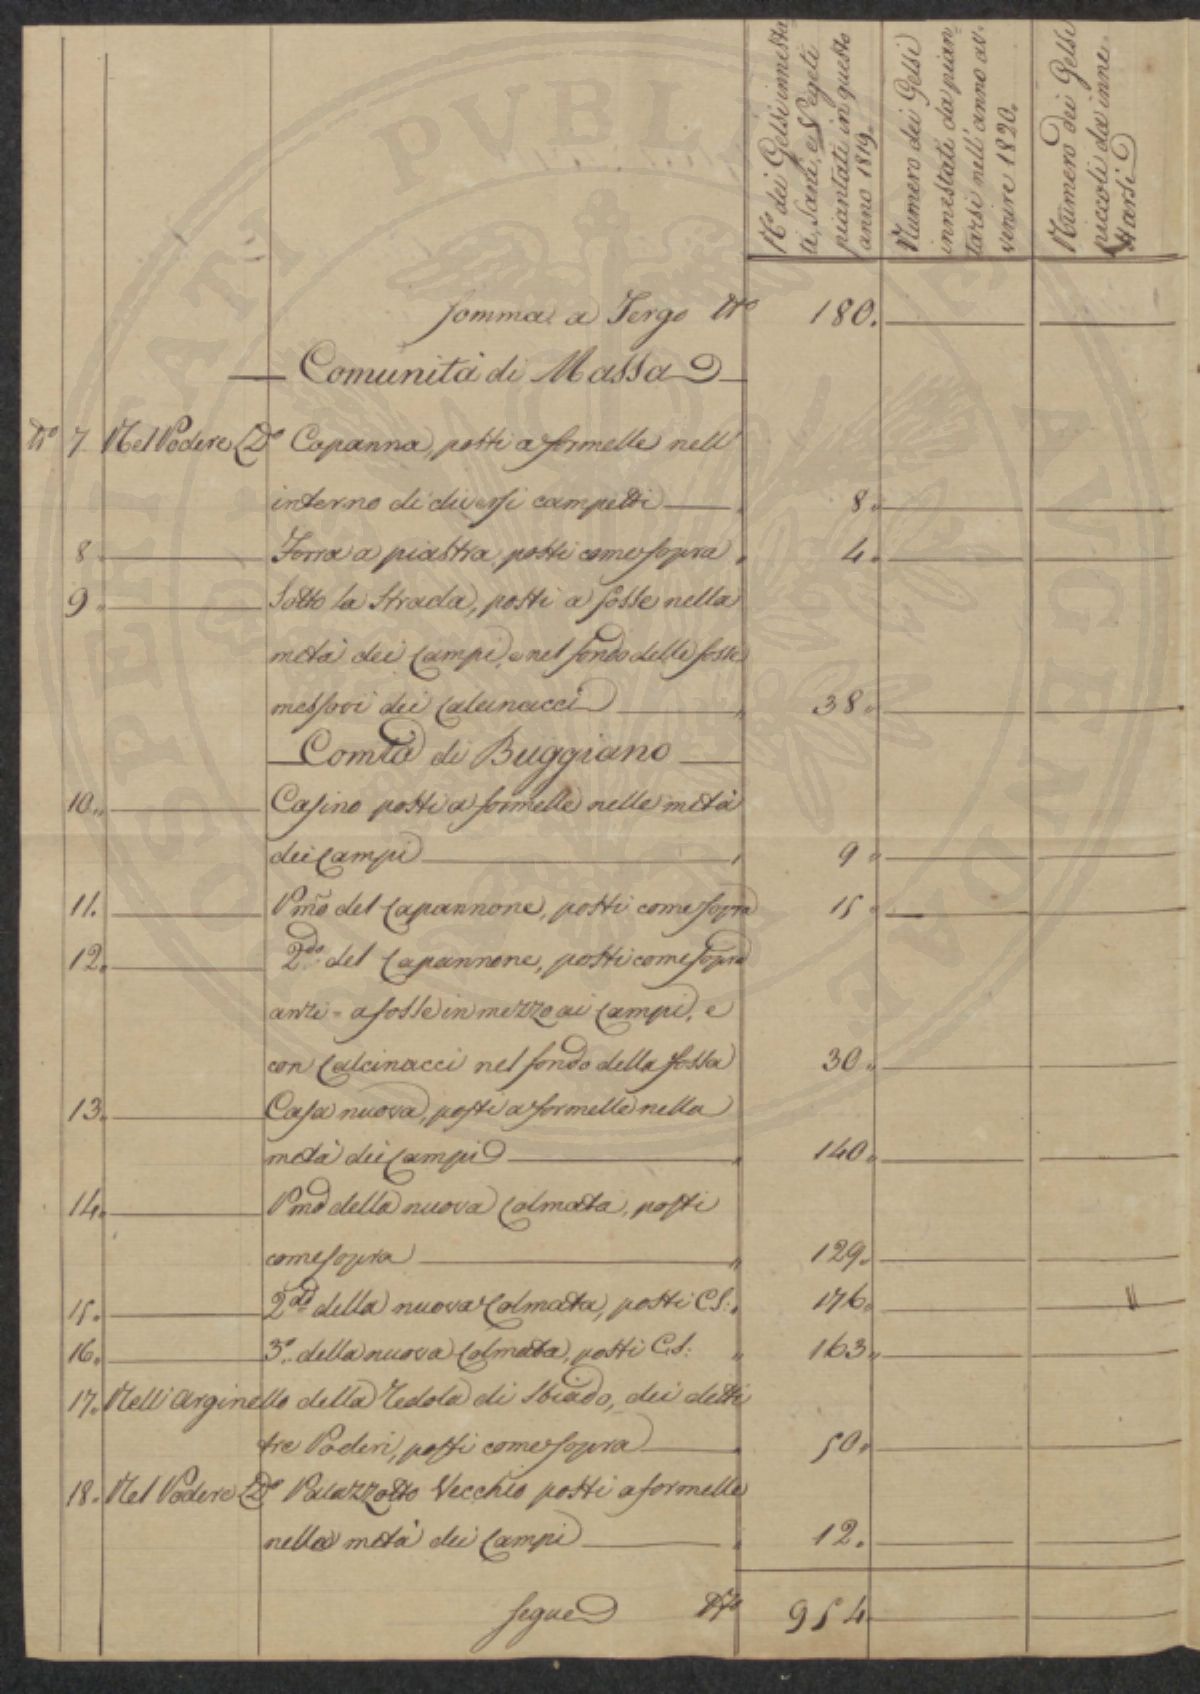 N.° dei Gelsi innesta-
ti, Sani, e Vegeti
piantati in questo
anno 1819.
Numero dei Gelsi
innestati da pian-
tarsi nell'anno av-
venire 1820.
Numero dei Gelsi
piccoli da inne-
starsi
Somma a Tergo N.° 180.
Comunità di Massa
N.° 7. Nel Podere D.° Capanna, posti a formelle nell'
interno di diversi campetti 8.
8. Torra a piastra, posti come sopra 4.
9. Sotto la Strada, posti a fosse nella
metà dei Campi, e nel fondo delle fosse
messovi dei Calcinacci 38.
Com.tà di Buggiano
10. Casino posti a formelle nelle metà
dei Campi 9.
11. P.mo del Capannone, posti come sopra 15.
12. 2.do del Capannone, posti come sopra
anzi = a fosse in mezzo ai Campi, e
con Calcinacci nel fondo della fossa 30.
13. Casa nuova, posti a formelle nella
metà dei Campi 140.
14. P.mo della nuova Colmata, posti
come sopra 129.
15. 2.do della nuova Colmata, posti C.S: 176.
16. 3.° della nuova Colmata, posti C.S: 163.
17. Nell'Arginello della Redola di Sbiado, dei detti
tre Poderi, posti come sopra 50.
18. Nel Podere D.° Palazzotto Vecchio posti a formelle
nella metà dei Campi 12.
Segue N.° 954